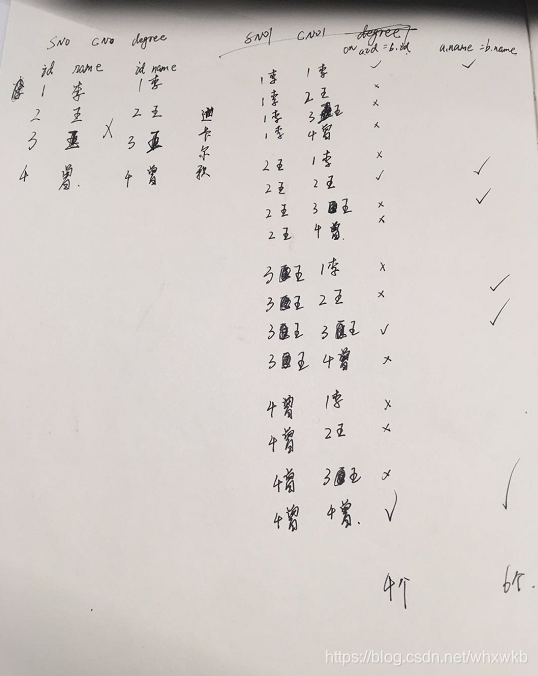 SNO CNO degree
id name id name
1 李 1 李
2 王 2 王
3 王 × 3 王
4 曾. 4 曾
迪卡尔积
SNO1 CNO1 degree1
on a.id=b.id a.name=b.name
1李 1李 ✓ ✓
1李 2王 ×
1李 3王 ×
1李 4曾 ×
2王 1李 ×
2王 2王 ✓ ✓
2王 3王 × ✓
2王 4曾. ×
3王 1李 ×
3王 2王 × ✓
3王 3王 ✓ ✓
3王 4曾 ×
4曾 1李 ×
4曾 2王 ×
4曾 3王 ×
4曾 4曾. ✓ ✓
4个 6个.
https://blog.csdn.net/whxwkb